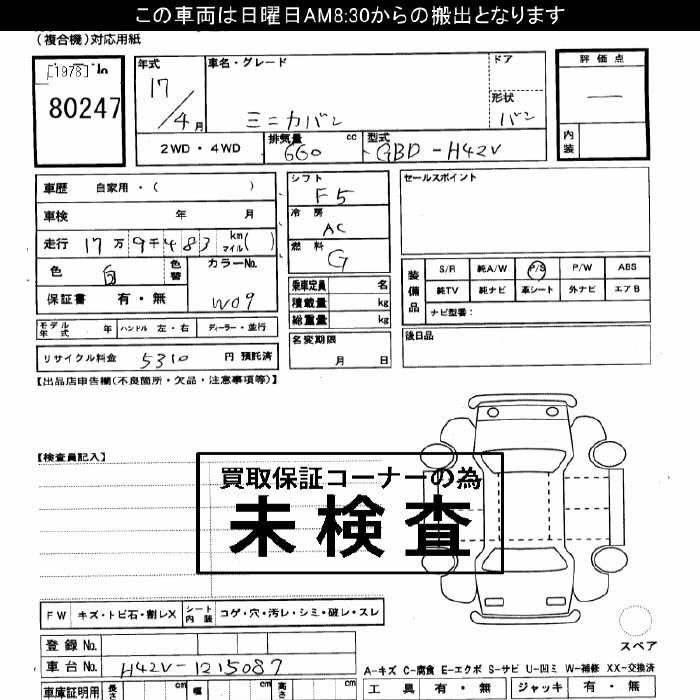 この車両は日曜日AM8:30からの搬出となります
(複合機)対応用紙
[1978]
80247
年式 17/4月
車名・グレード ミニカバン
ドア
形状 バン
評価点 —
内装
2WD・4WD
排気量 660 cc
型式 GBD-H42V
車歴 自家用・( )
車検 年 月
走行 17万9千483 km マイル( )
色 白 色替
カラーNo. W09
保証書 有・無
モデル年式 年 ハンドル 左・右 ディーラー・並行
リサイクル料金 5310 円 預託済
シフト F5
冷房 AC
燃料 G
乗車定員 名
積載量 kg
総重量 kg
名変期限 月 日
セールスポイント
装備品
S/R 純A/W P/S P/W ABS
純TV 純ナビ 革シート 外ナビ エアB
ナビ型番:
後日品
【出品店申告欄(不良箇所・欠品・注意事項等)】
【検査員記入】
買取保証コーナーの為
未検査
FW キズ・トビ石・割レX シート内装 コゲ・穴・汚レ・シミ・破レ・スレ
登録No.
車台No. H42V-1215087
車庫証明用 長さ cm 幅 cm 高さ cm
スペア
A-キズ C-腐食 E-エクボ S-サビ U-凹ミ W-補修 XX-交換済
工具 有・無 ジャッキ 有・無